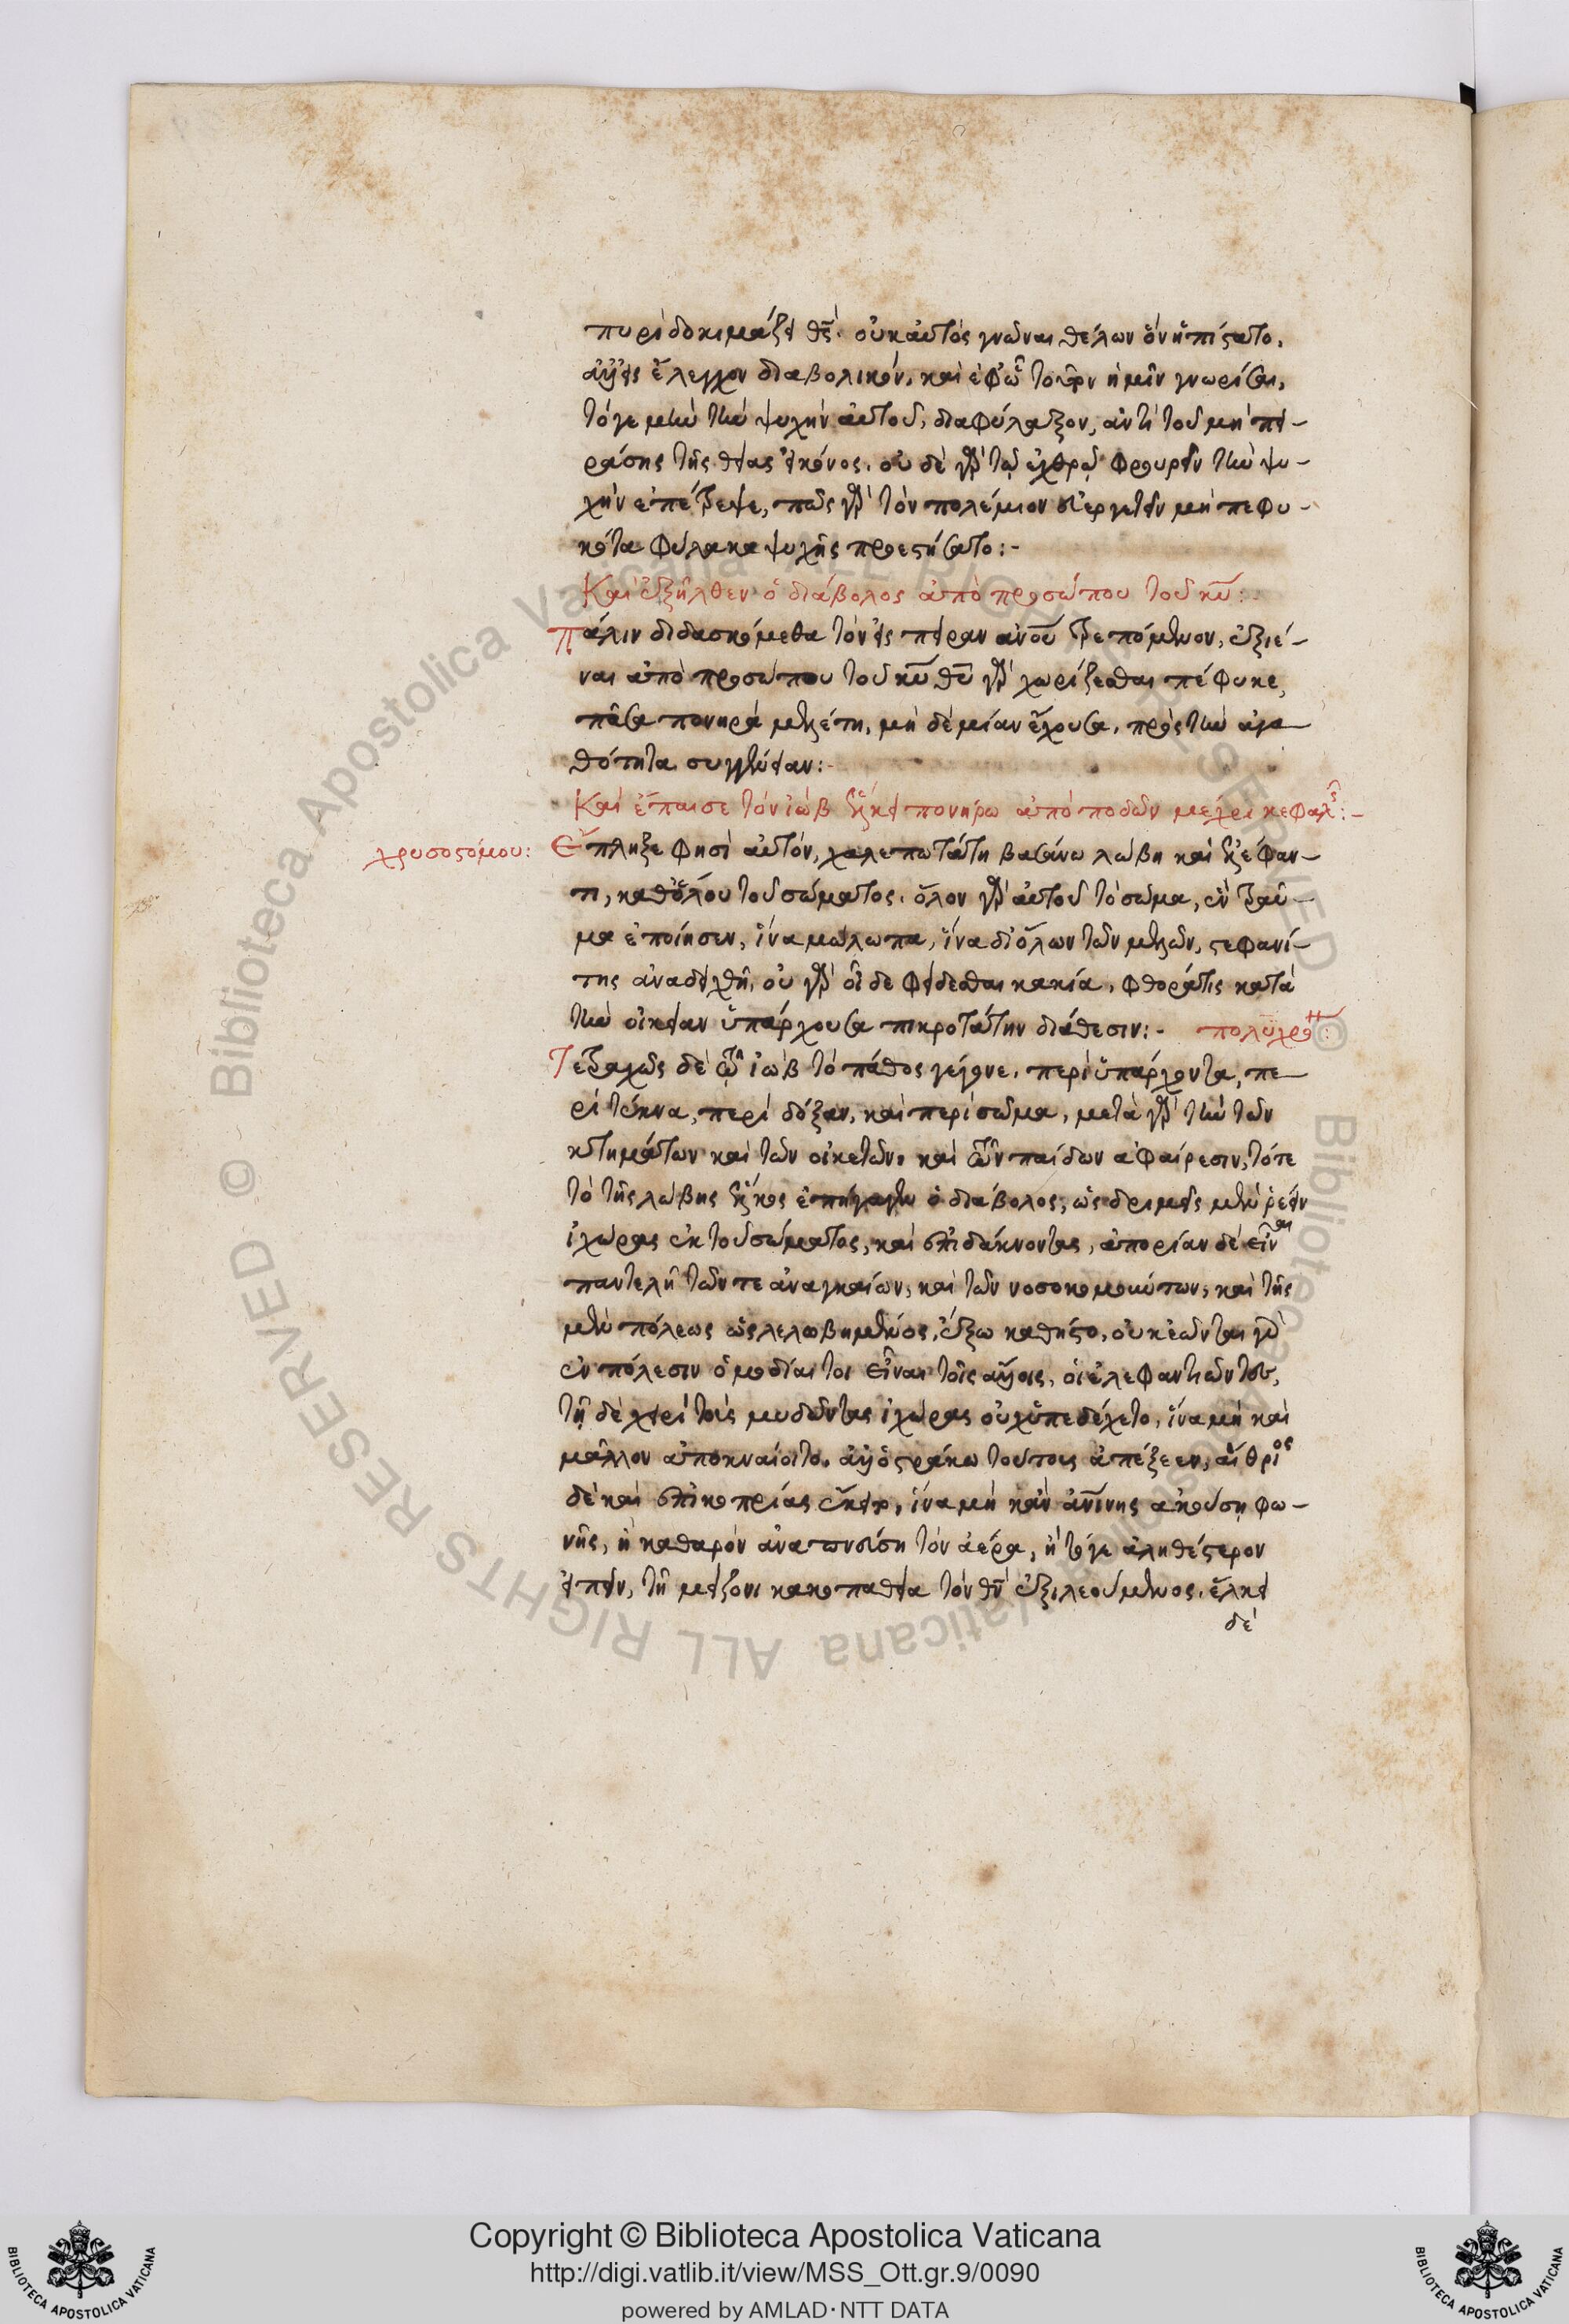 πυρὶ δοκιμάζει θς. οὐκ αὐτὸς γνῶναι θέλων ὃν ἠπίστατο,
ἀλλ' εἰς ἔλεγχον διαβολικόν, καὶ ἐφ' ᾧ τοῦτον ἡμῖν γνωρίσαι,
τό γε μὴν τὴν ψυχὴν αὐτοῦ, διαφύλαξον, ἀντὶ τοῦ μὴ πει-
ράσης τῆς θείας εἰκόνος. οὐ δὲ γὰρ τῷ ἐχθρῷ φρουρεῖν τὴν ψυ-
χὴν ἐπέτρεψε, πῶς γὰρ τὸν πολέμιον εὐεργετεῖν μὴ πεφυ-
κότα φύλακα ψυχῆς προεστήσατο:-
Καὶ ἐξῆλθεν ὁ διάβολος ἀπὸ προσώπου τοῦ κυ:
Πάλιν διδασκόμεθα τὸν εἰς πεῖραν ἀνου τρεπόμενον, ἐξιέ-
ναι ἀπὸ προσώπου τοῦ κυ θυ γὰρ χωρίζεσθαι πέφυκε,
πᾶσα πονηρὰ μελέτη, μὴ δὲ μίαν ἔχουσα, πρὸς τὴν ἀγα-
θότητα συγγένειαν:-
Καὶ ἔπαισε τὸν ἰὼβ ἕλκει πονηρῷ ἀπὸ ποδῶν μέχρι κεφαλῆς:-
χρυσοστόμου: Ἔπληξε φησὶ αὐτόν, χαλεπωτάτη βασάνω λώβη καὶ ἐλέφαν-
τι, καθόλου τοῦ σώματος. ὅλον γὰρ αὐτοῦ τὸ σῶμα, ἓν τραῦ-
μα ἐποίησεν, ἕνα μώλωπα, ἵνα δι' ὅλων τῶν μελῶν, στεφανί-
της ἀναδειχθῆ, οὐ γὰρ οἶδε φείδεσθαι κακία, φθορά τις κατὰ
τὴν οἰκείαν ὑπάρχουσα πικροτάτην διάθεσιν:- πολυχρο:
Τετραχῶς δὲ τῷ ἰὼβ τὸ πάθος γέγονε. περὶ ὑπάρχοντα, πε-
ρὶ τέκνα, περὶ δόξαν, καὶ περὶ σῶμα, μετὰ γὰρ τὴν τῶν
κτημάτων καὶ τῶν οἰκετῶν, καὶ τῶν παίδων ἀφαίρεσιν, τότε
τὸ τῆς λώβης ἕλκος ἐπήγαγεν ὁ διάβολος, ὡς δριμεῖς μὲν ῥεῖν
ἰχῶρας ἐκ τοῦ σώματος, καὶ ἐπιδάκνοντας, ἀπορίαν δὲ εἶναι
παντελῆ τῶν τε ἀναγκαίων, καὶ τῶν νοσοκομούντων, καὶ τῆς
μὲν πόλεως ὡς λελωβημένος, ἔξω καθῆστο, οὐκ ἐῶνται γὰρ
ἐν πόλεσιν ὁμοδίαιτοι εἶναι τοῖς ἄλλοις, οἱ ἐλεφαντιῶντες,
τῇ δὲ χειρὶ τοὺς μυδῶντας ἰχῶρας οὐχ ὑπεδέχετο, ἵνα μὴ καὶ
μᾶλλον ἀποκναίοιτο. ἀλλ' ὀστράκω τούτους ἀπέξεεν, αἴθριος
δὲ καὶ ἐπὶ κοπρίας ἔκειτο, ἵνα μὴ κἂν ἀντίνης ἀκούση φω-
νῆς, ἢ καθαρὸν ἀναπνεύση τὸν ἀέρα, ἢ τό γε ἀληθέστερον
εἰπεῖν, τῇ μείζονι κακοπαθεία τὸν θν ἐξιλεούμενος. ἕλκει
δὲ
Copyright © Biblioteca Apostolica Vaticana
http://digi.vatlib.it/view/MSS_Ott.gr.9/0090
powered by AMLAD·NTT DATA